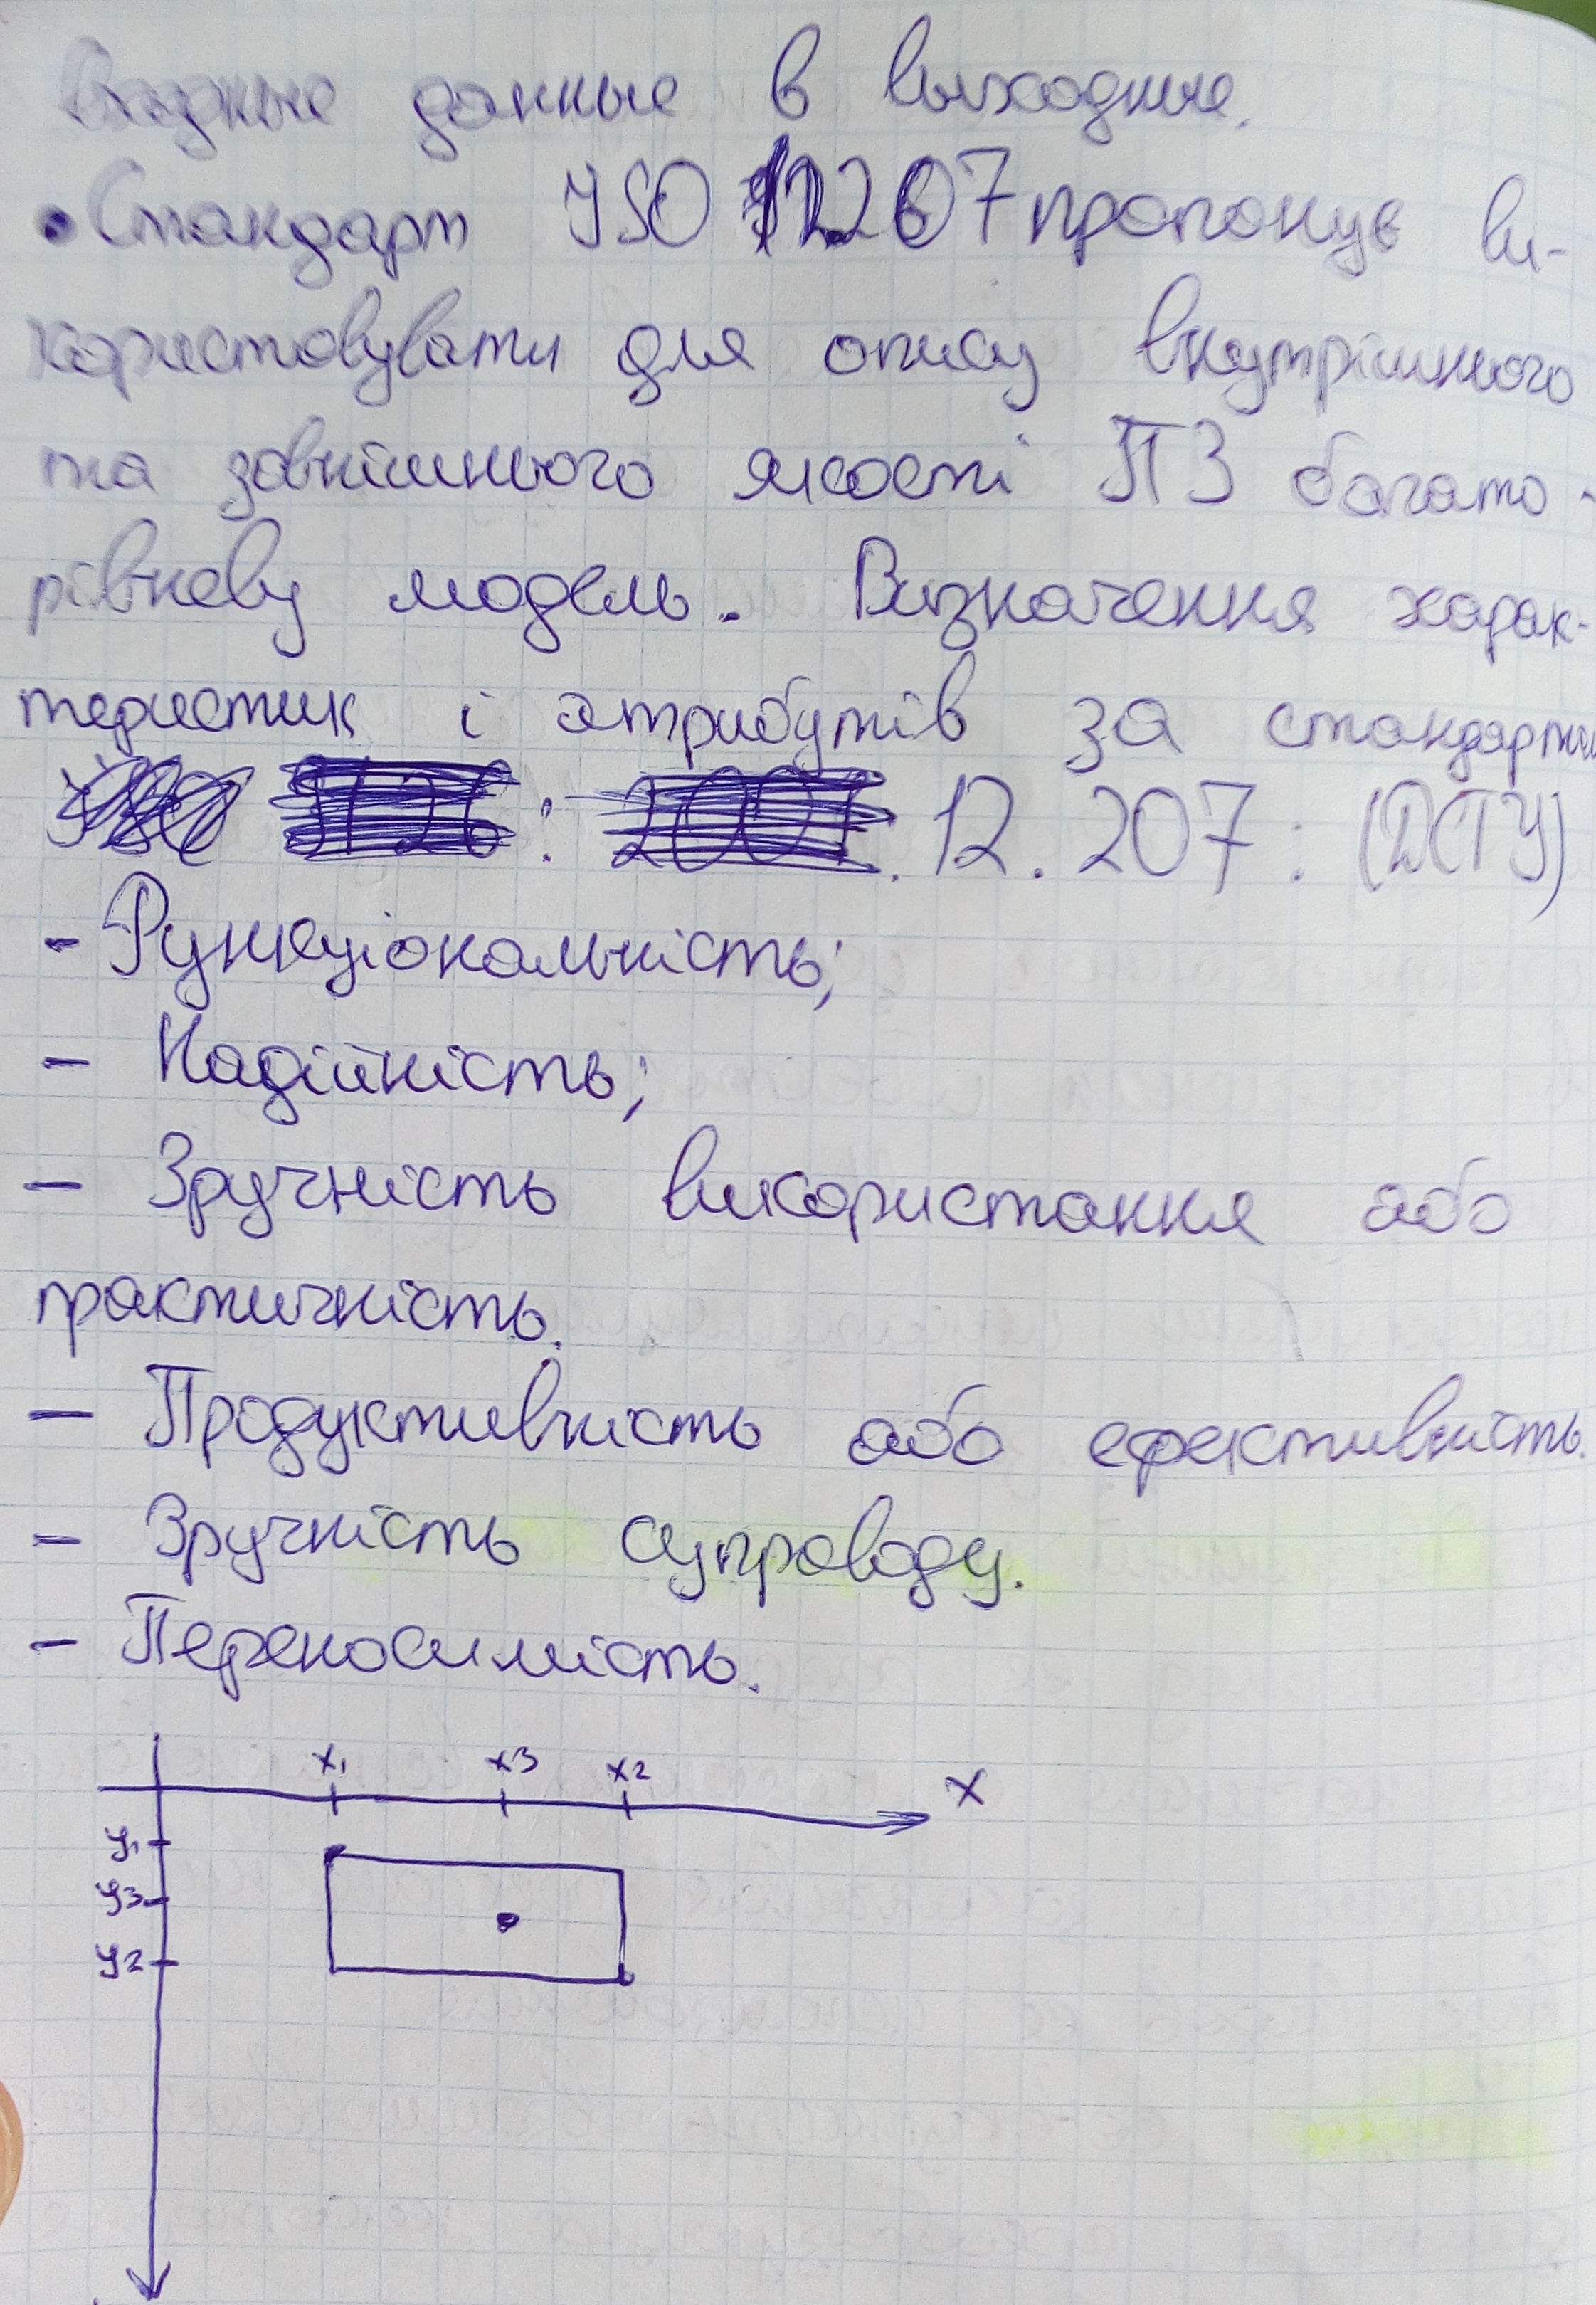 Входные данные в выходные.
• Стандарт ISO 12207 пропонує ви-
користовувати для опису внутрішнього
та зовнішнього якості ПЗ багато-
рівневу модель. Визначення харак-
теристик і атрибутів за стандартом
: . 12.207: (ДСТУ)
- Функціональність;
- Надійність;
- Зручність використання або
практичність.
- Продуктивність або ефективність.
- Зручність супроводу.
- Переносимість.
x1 x3 x2 x
y1
y3
y2